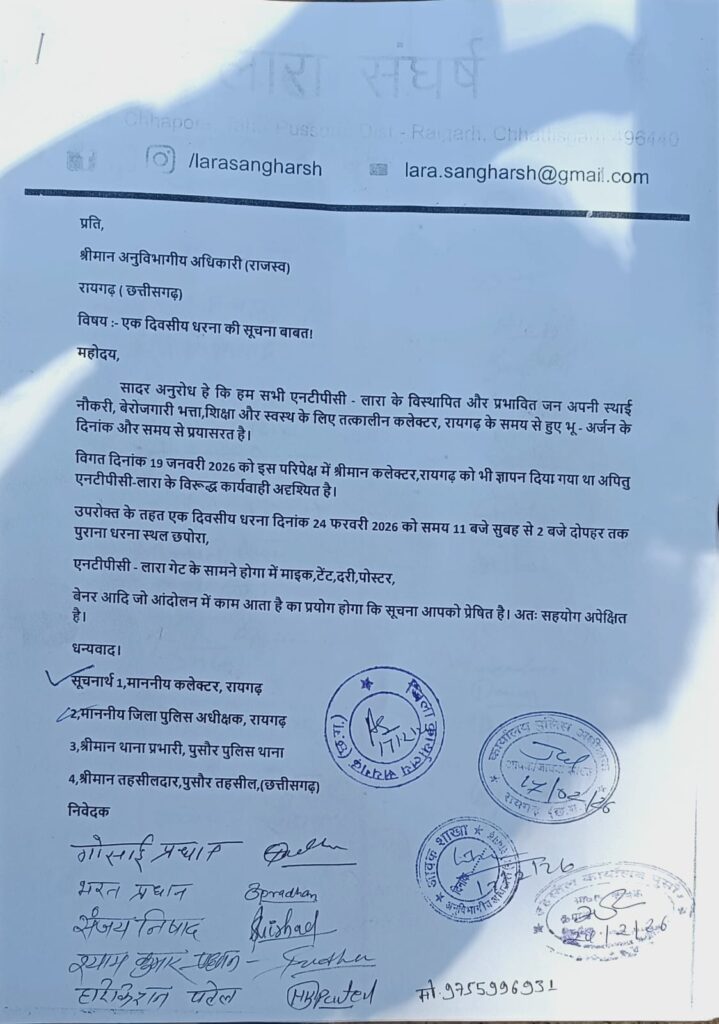 लारा संघर्ष
Chhapora, Pussore Dist - Raigarh, Chhattisgarh 496440
/larasangharsh lara.sangharsh@gmail.com
प्रति,
श्रीमान अनुविभागीय अधिकारी (राजस्व)
रायगढ़ ( छत्तीसगढ़)
विषय :- एक दिवसीय धरना की सूचना बाबत!
महोदय,
सादर अनुरोध हे कि हम सभी एनटीपीसी - लारा के विस्थापित और प्रभावित जन अपनी स्थाई
नौकरी, बेरोजगारी भत्ता,शिक्षा और स्वस्थ के लिए तत्कालीन कलेक्टर, रायगढ़ के समय से हुए भू - अर्जन के
दिनांक और समय से प्रयासरत है।
विगत दिनांक 19 जनवरी 2026 को इस परिपेक्ष में श्रीमान कलेक्टर,रायगढ़ को भी ज्ञापन दिया गया था अपितु
एनटीपीसी-लारा के विरूद्ध कार्यवाही अदृश्यित है।
उपरोक्त के तहत एक दिवसीय धरना दिनांक 24 फरवरी 2026 को समय 11 बजे सुबह से 2 बजे दोपहर तक
पुराना धरना स्थल छपोरा,
एनटीपीसी - लारा गेट के सामने होगा में माइक,टेंट,दरी,पोस्टर,
बेनर आदि जो आंदोलन में काम आता है का प्रयोग होगा कि सूचना आपको प्रेषित है। अतः सहयोग अपेक्षित
है।
धन्यवाद।
सूचनार्थ 1,माननीय कलेक्टर, रायगढ़
2,माननीय जिला पुलिस अधीक्षक, रायगढ़
3,श्रीमान थाना प्रभारी, पुसौर पुलिस थाना
4,श्रीमान तहसीलदार,पुसौर तहसील,(छत्तीसगढ़)
निवेदक
जिला कार्यालय रायगढ़ (छ.ग.)
कार्यालय पुलिस अधीक्षक
17/02/26
रायगढ़ (छ.ग.)
जावक शाखा
तहसील कार्यालय पुसौर
गोसाई प्रधान
भरत प्रधान Bpradhan
संजय निषाद Nishad
श्याम कुमार प्रधान -
हरिकिशन पटेल HKPatel मो.9755996931